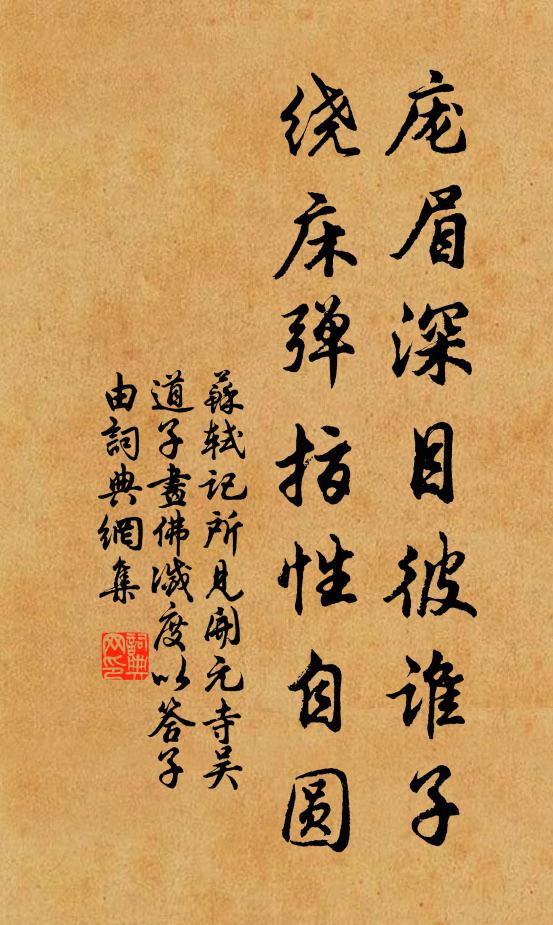 庬眉深目彼谁子
绕床弹指性自圆
蘇軾记所見開元寺吴
道子畫佛滅度以答子
由詞典網集
詞典网印